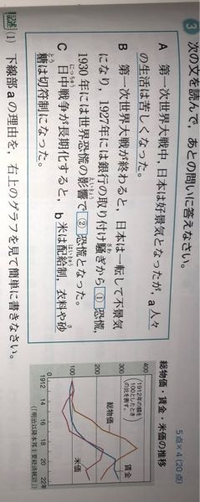 3 次の文を読んで，あとの問いに答えなさい。
5点×4(20点)
A 第一次世界大戦中，日本は好景気となったが，a人々
の生活は苦しくなった。
B 第一次世界大戦が終わると，日本は一転して不景気
になり，1927年には銀行の取り付け騒ぎから①恐慌，
1930年には世界恐慌の影響で②恐慌となった。
C 日中戦争が長期化すると，b米は配給制，衣料や砂
糖は切符制になった。
総物価・賃金・米価の推移
400
1912年の値を
100としたとき
の比を表す。
300
200
100
0
総物価
賃金
米価
1912 14 16 18 20 22年
(「明治以降本邦主要経済統計」)
記述 (1) 下線部aの理由を，右上のグラフを見て簡単に書きなさい。